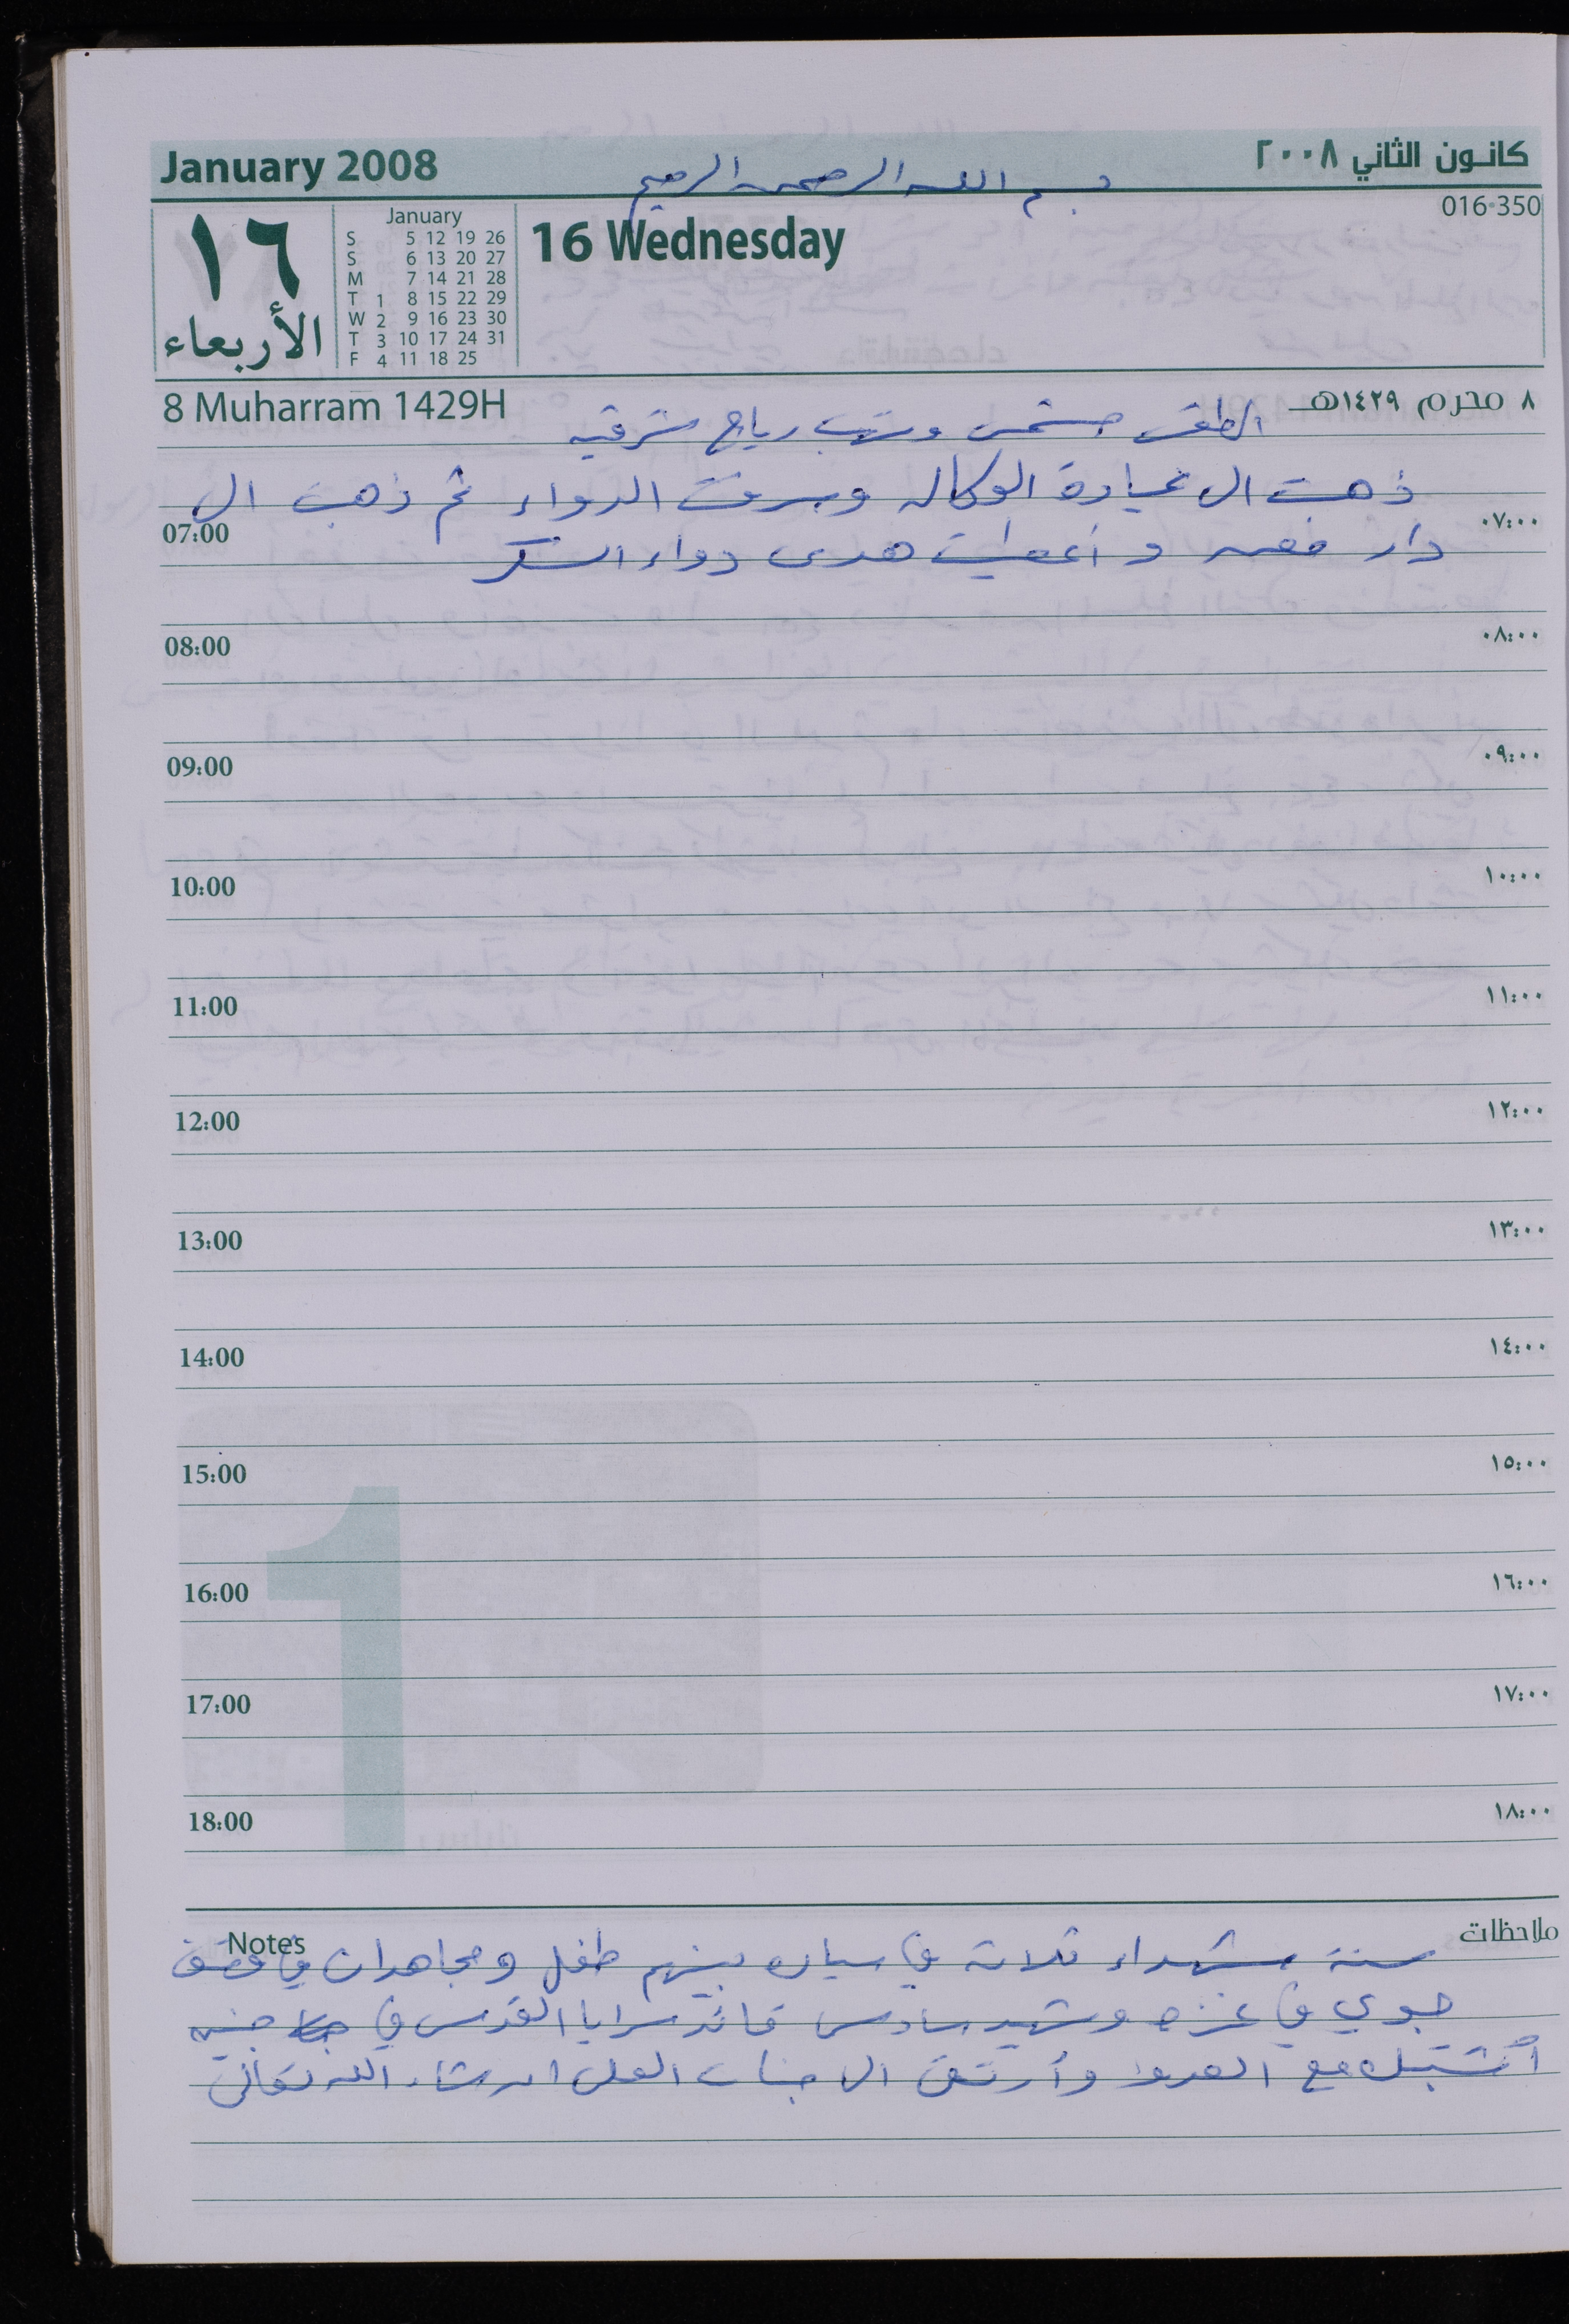 January 2008
كانون الثاني ٢٠٠٨
بسم الله الرحمن الرحيم
016-350
١٦
الأربعاء
January
S 5 12 19 26
S 6 13 20 27
M 7 14 21 28
T 1 8 15 22 29
W 2 9 16 23 30
T 3 10 17 24 31
F 4 11 18 25
16 Wednesday
8 Muharram 1429H
٨ محرم ١٤٢٩هـ
الطقس مشمس وتهب رياح شرقيه
ذهبت الى عيادة الوكاله وصرفت الدواء ثم ذهبت الى
07:00 ٠٧:٠٠
دار و أعطيت هدى دواء السكر
08:00 ٠٨:٠٠
09:00 ٠٩:٠٠
10:00 ١٠:٠٠
11:00 ١١:٠٠
12:00 ١٢:٠٠
13:00 ١٣:٠٠
14:00 ١٤:٠٠
15:00 ١٥:٠٠
16:00 ١٦:٠٠
17:00 ١٧:٠٠
18:00 ١٨:٠٠
Notes ملاحظات
ستة شهداء ثلاثة في سياره بينهم طفل ومجاهدان في قصف
جوي في غزه وشهيد سادس قائد سرايا القدس في جنين
أشتبك مع العدو وأرتقى الى جنات العلى ان شاء الله تعالى